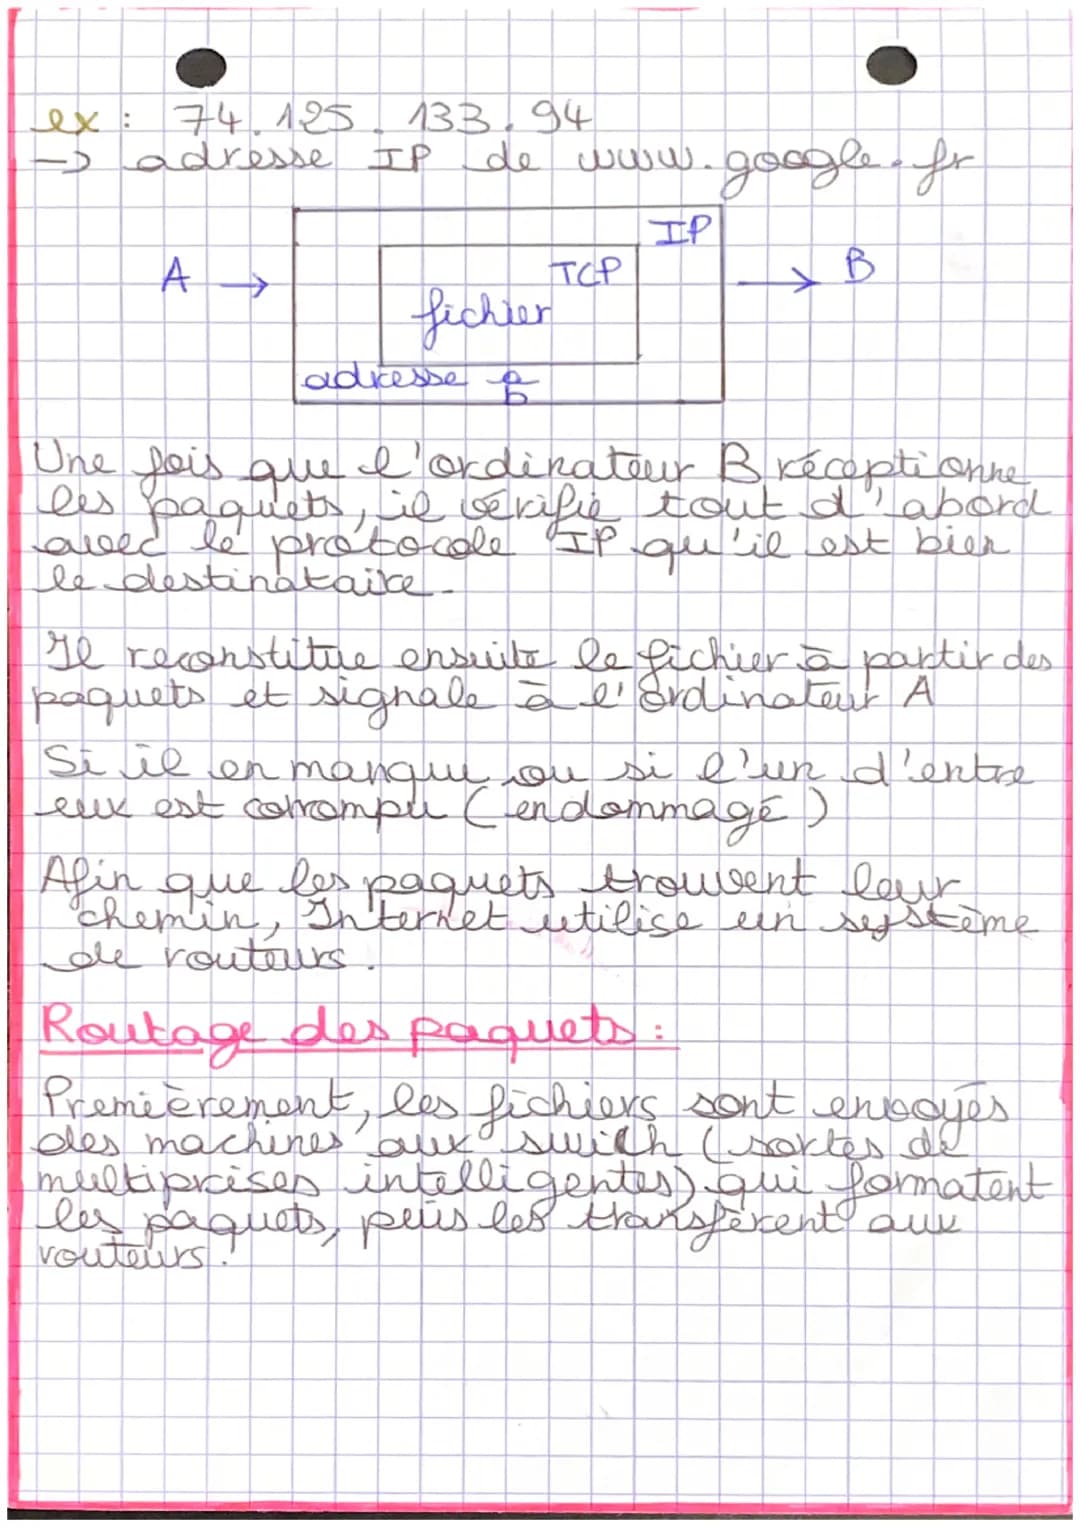 ex : 74.125.133.94
-> adresse IP de www.google.fr
IP
A → TCP → B
fichier
adresse a b
Une fois que l'ordinateur B réceptionne
les paquets, il vérifie tout d'abord
avec le protocole IP qu'il est bien
le destinataire.
Il reconstitue ensuite le fichier à partir des
paquets et signale à l'ordinateur A
Si il en manque ou si l'un d'entre
eux est corrompu (endommagé)
Afin que les paquets trouvent leur
chemin, Internet utilise un système
de routeurs.
Routage des paquets :
Premièrement, les fichiers sont envoyés
des machines aux swich (sortes de
multiprises intelligentes) qui formatent
les paquets, puis les transfèrent aux
routeurs.